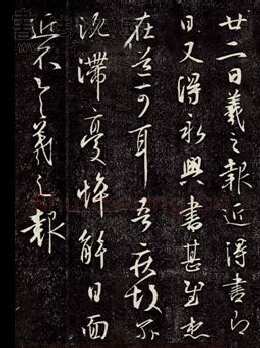 廿二日羲之報近得書即
日又得永興書甚慰想
在道可耳吾疾故爾
沈滯憂悴解日面
近不具羲之報